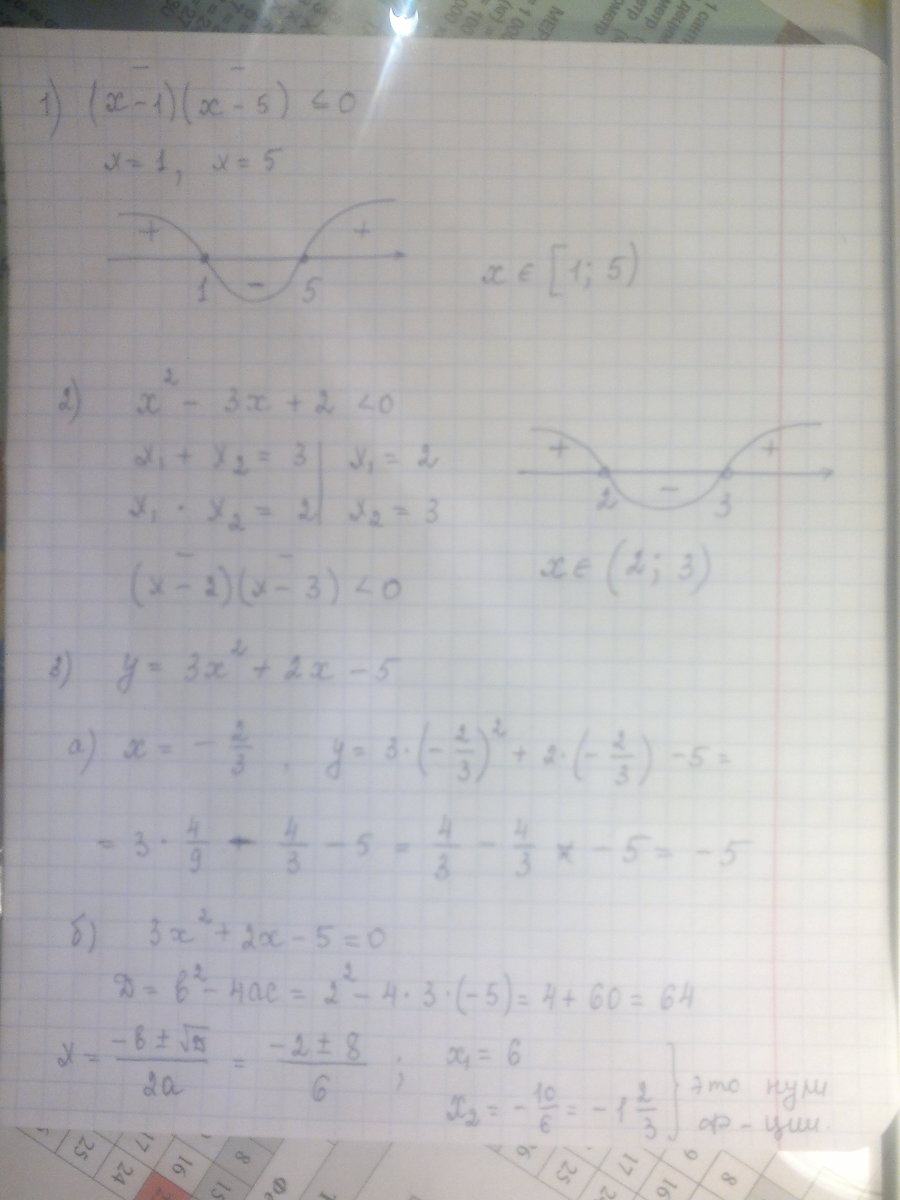 1) (x-1)(x-5) ≤ 0
x = 1, x = 5
+ - +
1 5
x ∈ [1; 5)
2) x² - 3x + 2 < 0
x₁ + x₂ = 3 | x₁ = 2
x₁ · x₂ = 2 | x₂ = 3
(x - 2)(x - 3) < 0
+ - +
2 3
x ∈ (2; 3)
3) y = 3x² + 2x - 5
а) x = - 2/3, y = 3·(-2/3)² + 2·(-2/3) - 5 =
= 3 · 4/9 - 4/3 - 5 = 4/3 - 4/3 - 5 = -5
б) 3x² + 2x - 5 = 0
Д = b² - 4ac = 2² - 4·3·(-5) = 4 + 60 = 64
x = (-b ± √Д)/2a = (-2 ± 8)/6 ; x₁ = 6
x₂ = -10/6 = -1 2/3 } это нули
ф-ции.